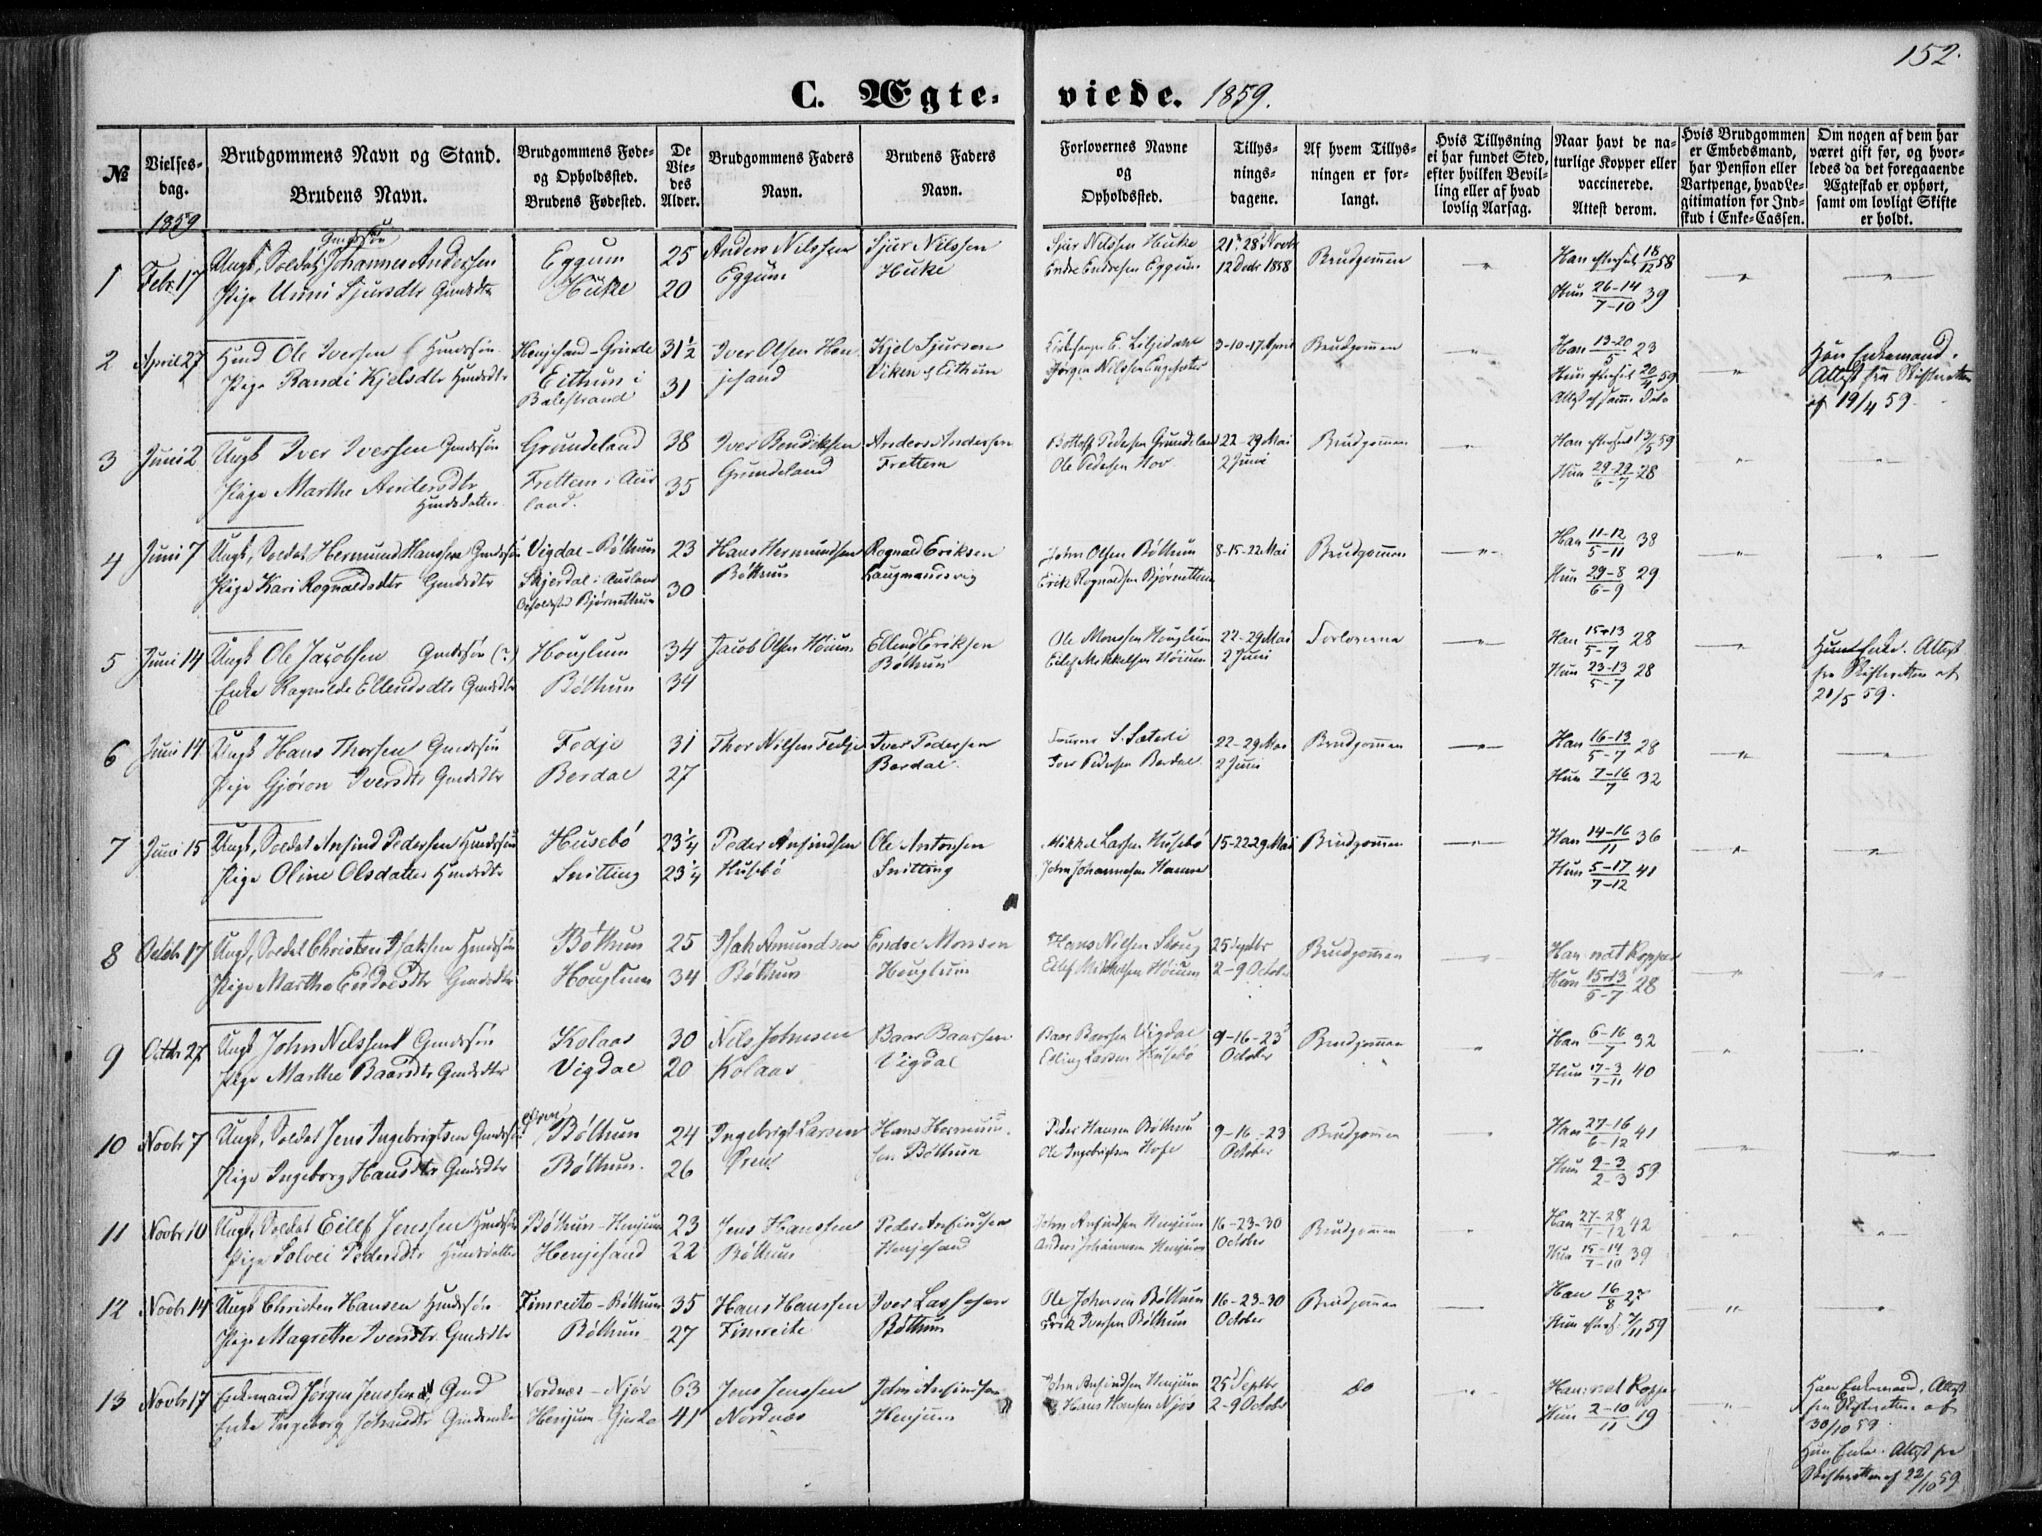 152.
C. Ægte- viede. 1859.
№
Vielses-
dag.
1859
Brudgommens Navn og Stand.
Brudens Navn.
Brudgommens Føde-
og Opholdssted.
Brudens Fødested.
De
Vie-
des
Alder.
Brudgommens Faders
Navn.
Brudens Faders
Navn.
Forlovernes Navne
og
Opholdssted.
Tillys-
nings-
dagene.
Af hvem Tillys-
ningen er for-
langt.
Hvis Tillysning
ei har fundet Sted,
efter hvilken Bevil-
ling eller af hvad
lovlig Aarsag.
Naar havt de na-
turlige Kopper eller
vaccinerede.
Attest derom.
Hvis Brudgommen
er Embedsmand,
har Pension eller
Vartpenge, hvad Le-
gitimation for Ind-
skud i Enke-Cassen.
Om nogen af dem har
været gift før, og hvor-
ledes da det foregaaende
Ægteskab er ophørt,
samt om lovligt Skifte
er holdt.
1 Febr. 17 Ungk, Soldat Johannes Andersen Eggum 25 Anders Nilssen Sjur Nilssen Sjur Nilssen Huke 21, 28 Novbr Brudgommen Han 18/12 58
Pige Unni Sjursdtr Gmdsdtr Huke 20 Eggum Huke Endre Endresen Eggum 12 Decbr 1858 Hun 26-14/7-10 39
2 April 27 Ole Iversen Henjesand-Grinde 31½ Iver Olsen Hen- Kjel Sjursen 3-10-17 April Brudgommen Han 13-20/5 23 Han Enkemand.
Pige Randi Kjelsdtr Husmdsdtr Eithun i 31 jesand Viken Eithun Hun 20/4 59 Attest fra Skifteretten
Balestrand af 19/4 59.
3 Juni 2 Ungk Iver Iversen Gmdssøn Grundeland 38 Iver Bendiksen Anders Andersen Pedersen Grundeland 22-29 Mai Brudgommen Han 13/5 59
Pige Marthe Andersdtr Frettem i Aur- 35 Grundeland Frettem Ole Pedersen Hov 2 Juni Hun 29-22/6-7 28
land.
4 Juni 7 Ungk, Soldat Hermund Hanssen Gmdssøn Vigdal-Bøthun 23 Hans Hermundsen Rognald Eriksen John Olsen Bøthun 8-15-22 Mai Brudgommen Han 11-12/5-11 38
Pige Kari Rognaldsdtr Gmdsdtr Skjerdal i Aurland 30 Bøthun Erik Rognaldsen Bjørnetun Hun 29-8/6-9 29
5 Juni 14 Ungk Ole Jacobsen Gmdssøn (?) Houglum 34 Jacob Olsen Høium Ellend Eriksen Ole Monssen Houglum 22-29 Mai Forloverne Han 15+13/5-7 28 Hun Enke. Attest
Enke Ragnilde Ellendsdtr Gmdsdtr Bøthun 34 Bøthun Eilef Mikkelsen Høium 2 Juni Hun 23-13/5-7 28 fra Skifteretten af
20/5 59.
6 Juni 14 Ungk Hans Thorsen Gmdssøn Fedje 31 Thor Nilsen Fedje Iver Pedersen 22-29 Mai Brudgommen Han 16-13/5-7 28
Pige Gjøron Iversdtr Gmdsdtr Berdal 27 Berdal. Iver Pedersen Berdal 2 Juni Hun 7-16/7 32
7 Juni 15 Ungk, Soldat Ansind Pedersen Husebø 23¼ Peder Ansindsen Ole Antonsen Larsen Husebø 15-22 29 Mai Brudgommen Han 14-16/11 36
Pige Oline Olsdatter Snitting 23¼ Husebø Snitting John Johannesen Hun 5-17/7-12 41
8 Octobr 17 Ungk, Soldat Christen Isaksen Bøthun 25 Isak Amundsen Endre Monsen Hans Nilsen Skoug 25 Septbr Brudgommen Han nat Kopper
Pige Martha Endresdtr Gmdsdtr Houglum 34 Bøthun Houglum Eilef Mikkelsen Høium 2-9 October Hun 15+13/5-7 28
9 Octbr 27 Ungk John Nilssen Gmdssøn Kolaas 30 Nils Johnsen Baar Baarsen Baar Baarsen Vigdal 9-16-23 Brudgommen Han 6-16/7 32
Pige Marthe Baarsdtr Gmdsdtr Vigdal 20 Kolaas Vigdal Erling Larsen Husebø October Hun 17-3/7-11 40
10 Novbr 7 Ungk, Soldat Jens Ingebrigtsen Gmdssøn Bøthun 24 Ingebrigt Larsen Hans Hermun- Peder Hansen Bøthun 9-16-23 Brudgommen Han 27-16/6-12 41
Pige Ingeborg Hansdtr Gmdsdtr Bøthun. 26 sen Bøthun Ole Ingebrigtsen October Hun 2-3/2-3 59
11 Novbr 10 Ungk, Soldat Eilef Jenssen Bøthun-Henjum 23 Jens Hanssen Peder Ansindsen John Ansindsen Henjum 16-23-30 Brudgommen Han 27-28/7-12 42
Pige Solvei Pedersdtr Husmdsdatter Henjesand 22 Bøthun Henjesand Anders Johannesen Henjum October Hun 15-14/7-10 39
12 Novbr 14 Ungk Christen Hansen Fimreite-Bøthun 35 Hans Hanssen Iver Lassesen Ole Johnsen Bøthun 16-23-30 Brudgommen Han 16/8 27
Pige Magrethe Iversdtr Gmdsdtr Bøthun 27 Fimreite Bøthun Erik Iversen Bøthun October Hun 59
13 Novbr 17 Enkemand Jørgen Jenssen Gmd Nordnæs-Njøs 63 Jens Jenssen John Ansindsen John Ansindsen Henjum 25 Septbr do Han nat Kopper Han Enkemand, Attest
Enke Ingeborg Johnsdtr Henjum- 41 Nordnæs Henjum Hans Hansen Njøs 2-9 Octobr Hun 2-10/11 19 fra Skifteretten af
30/10 59.
Hun Enke. Attest fra
Skifteretten af 22/10 59